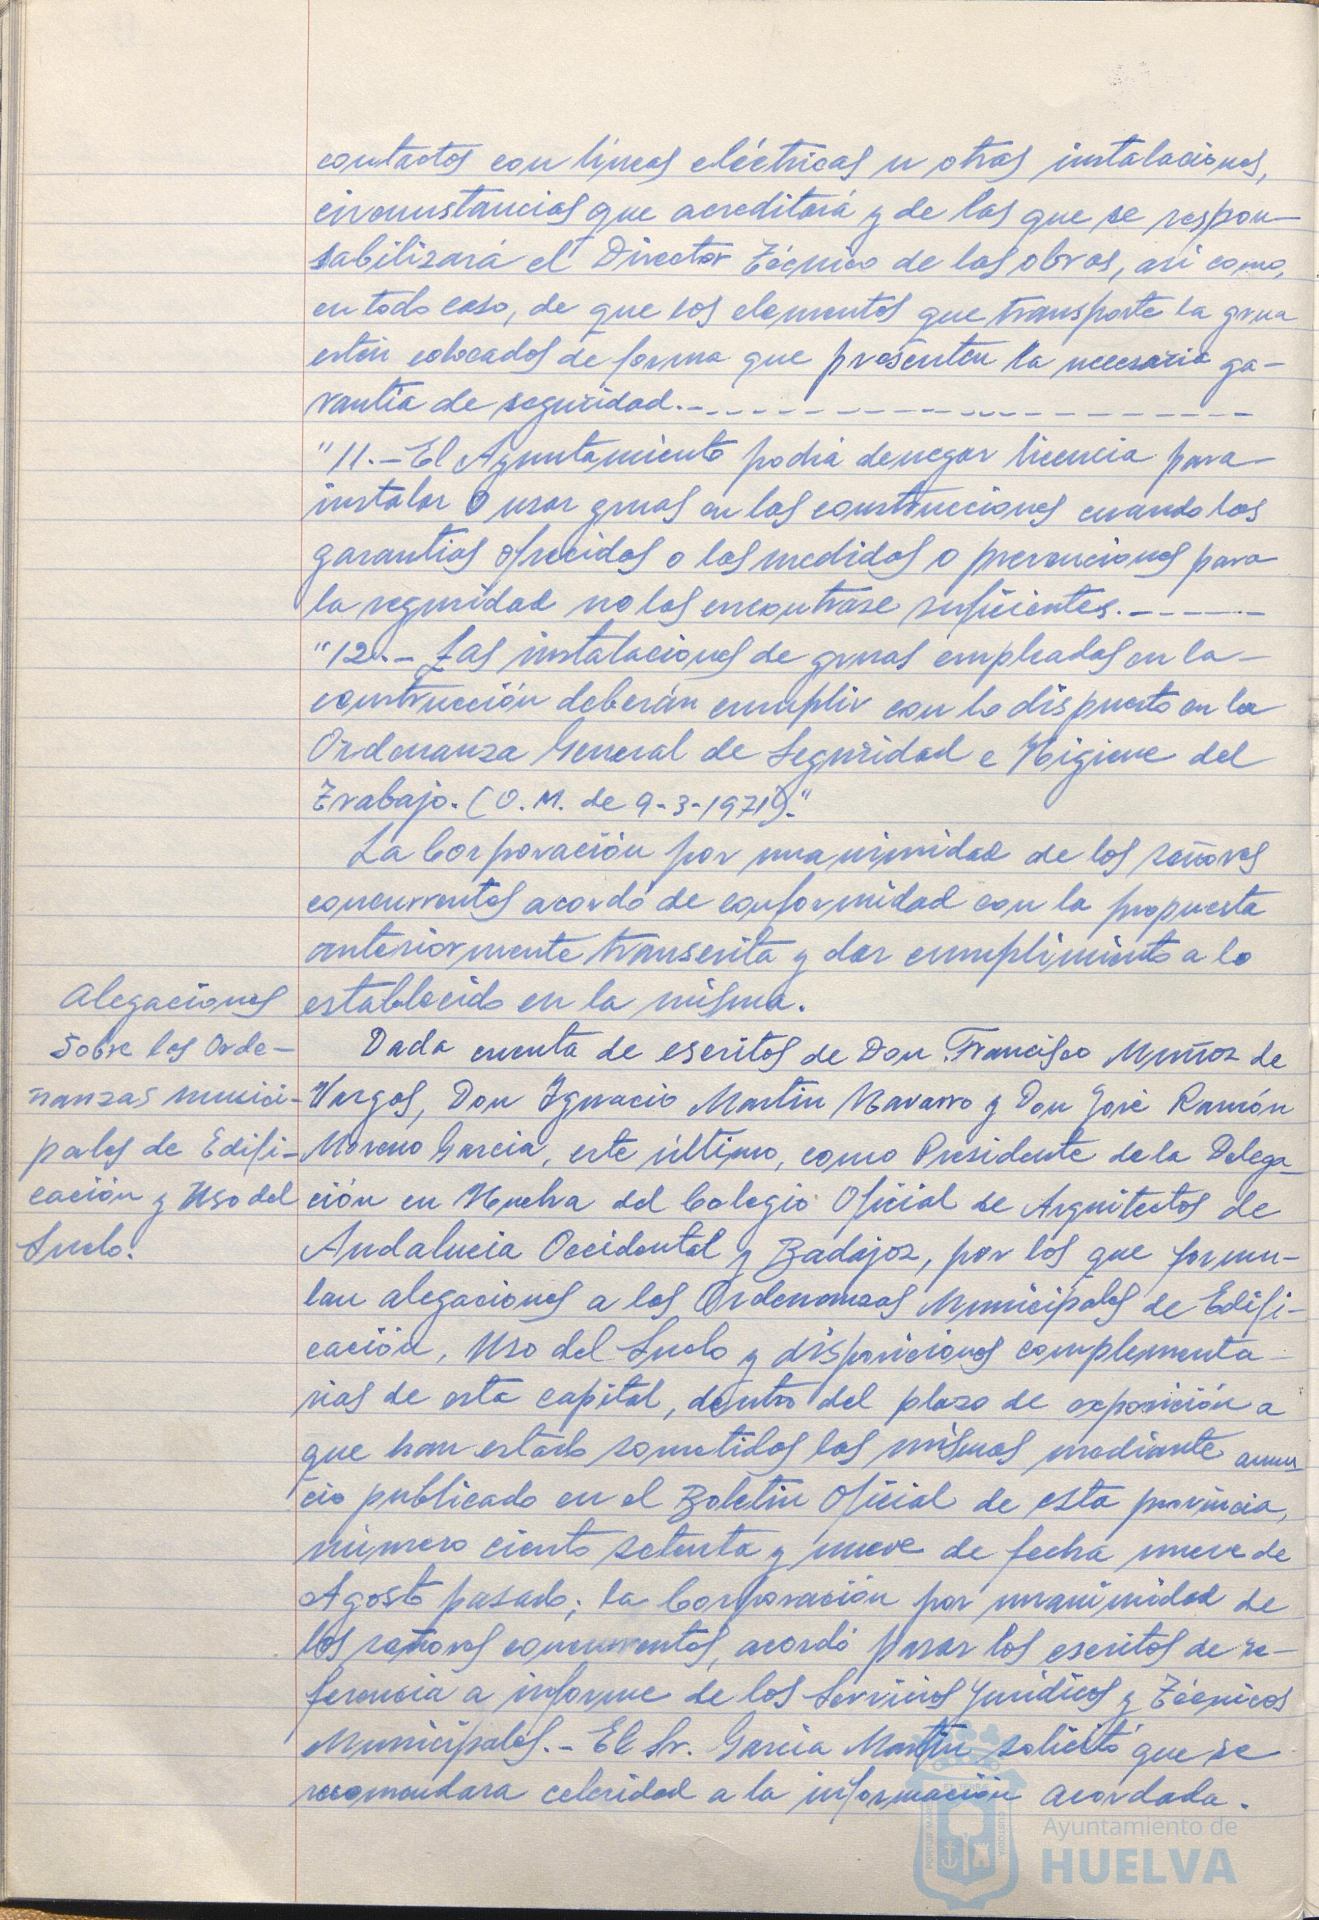 contactos con líneas eléctricas u otras instalaciones,
circunstancias que acreditará y de las que se respon-
sabilizará el Director Técnico de las obras, así como,
en todo caso, de que los elementos que transporte la grua
estén colocados de forma que presenten la necesaria ga-
rantía de seguridad.-
"11.- El Ayuntamiento podrá denegar licencia para
instalar o usar gruas en las construcciones cuando las
garantías ofrecidas o las medidas o prevenciones para
la seguridad no las encontrase suficientes.-
"12.- Las instalaciones de gruas empleadas en la
construcción deberán cumplir con lo dispuesto en la
Ordenanza General de Seguridad e Higiene del
Trabajo. (O.M. de 9-3-1971)."
La Corporación por unanimidad de los señores
concurrentes acordó de conformidad con la propuesta
anteriormente transcrita y dar cumplimiento a lo
establecido en la misma.
Alegaciones
sobre las Orde-
nanzas munici-
pales de Edifi-
cación y Uso del
Suelo.
Dada cuenta de escritos de Don Francisco Muñoz de
Vargas, Don Ignacio Martin Navarro y Don José Ramón
Moreno Garcia, este último, como Presidente de la Delega-
ción en Huelva del Colegio Oficial de Arquitectos de
Andalucia Occidental y Badajoz, por los que formu-
lan alegaciones a las Ordenanzas Municipales de Edifi-
cación, Uso del Suelo y disposiciones complementa-
rias de esta capital, dentro del plazo de exposición a
que han estado sometidas las mismas mediante anun-
cio publicado en el Boletin Oficial de esta provincia,
número ciento setenta y nueve de fecha nueve de
Agosto pasado; la Corporación por unanimidad de
los señores concurrentes, acordó pasar los escritos de re-
ferencia a informe de los Servicios Jurídicos y Técnicos
Municipales.- El Sr. Garcia Martin solicitó que se
recomendara celeridad a la información acordada.
Ayuntamiento de
HUELVA